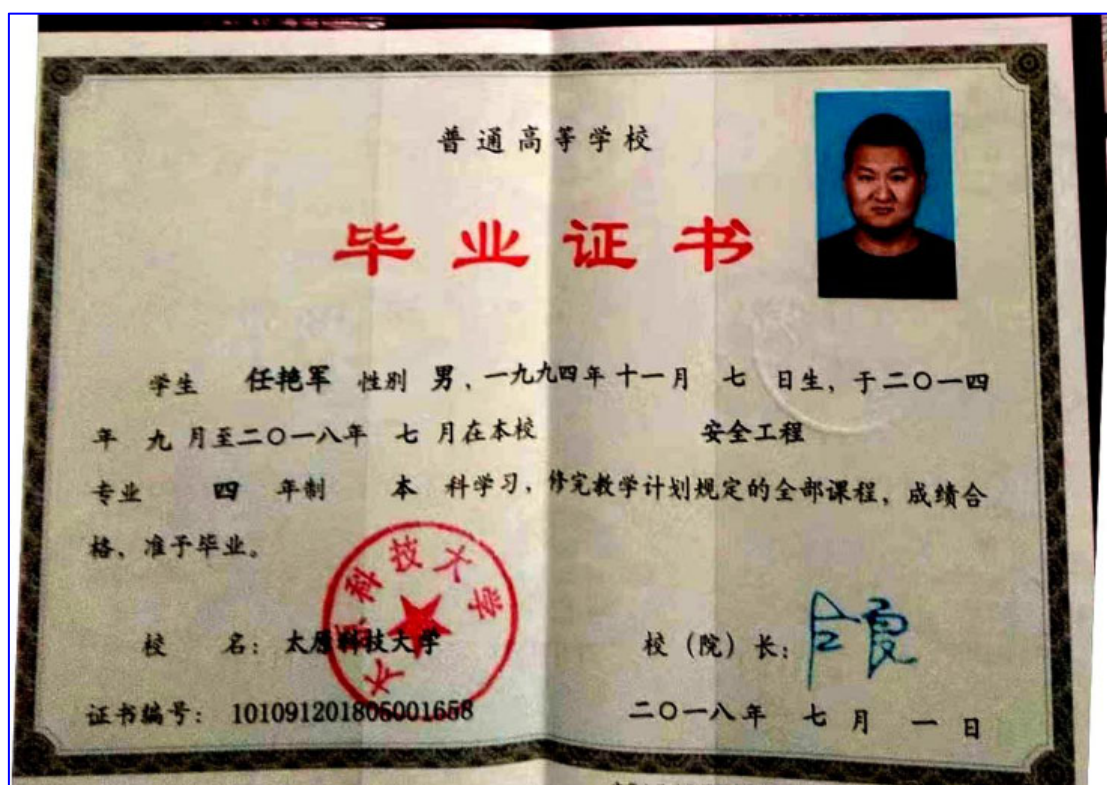 普通高等学校
毕业证书
学生 任艳军 性别 男、一九九四年十一月 七 日生，于二〇一四
年 九 月至二〇一八年 七 月在本校 安全工程
专业 四 年制 本 科学习，修完教学计划规定的全部课程，成绩合
格、准于毕业。
太原科技大学
校 名：太原科技大学 校（院）长：
证书编号：101091201805001658 二〇一八年 七 月 一 日